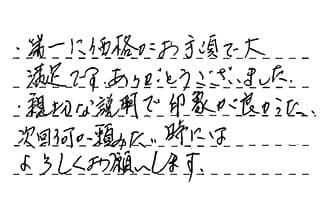 ・第一に価格がお手頃で大
満足です。ありがとうございました。
・親切な説明で印象が良かった。
次回何か頼みたい時には
よろしくお願いします。